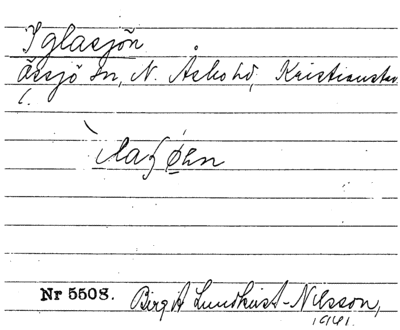 Iglasjön
Össjö sn, N. Åsbo hd, Kristianstads
l.
Nr 5508. Birgit Lundkvist-Nilsson,
1941.